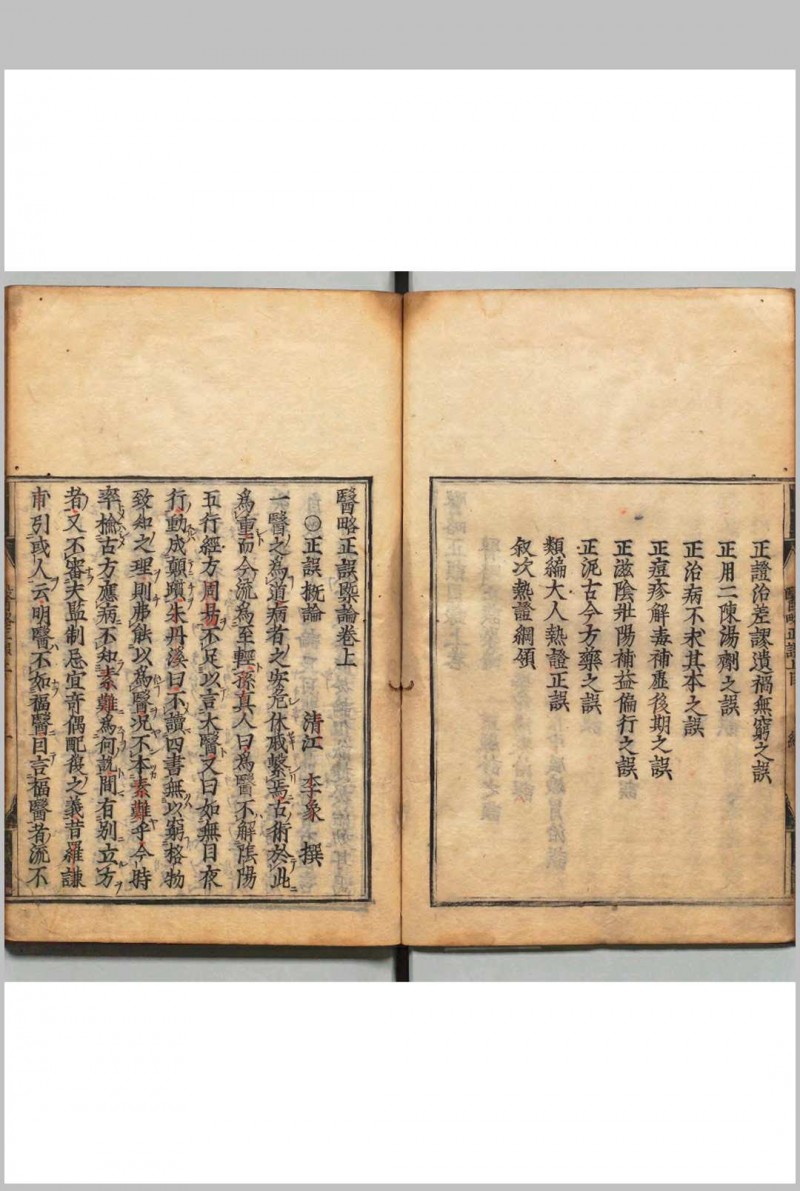 正證治差謬遺禍無窮之誤
正用二陳湯劑之誤
正治病不求其本之誤
正痘疹解毒補虛後期之誤
正滋陰壯陽補益偏行之誤
正泥古今方藥之誤
類編大人熱證正誤
叙次熱證綱領
醫略正誤槩論卷上
清江 李象 撰
○正誤概論
一醫之為道病者之安危休戚繫焉古術於此
為重而今流為至輕孫真人曰為醫不解陰陽
五行經方周易不足以言大醫又曰如無目夜
行動成顛隕朱丹溪曰不讀四書無以窮格物
致知之理則弗能以為醫况不本素難乎今時
率檢古方應病不知素難為何說間有別立方
者又不審夫監制忌宜奇偶配復之義昔羅謙
甫引或人云明醫不如福醫目言福醫者流不